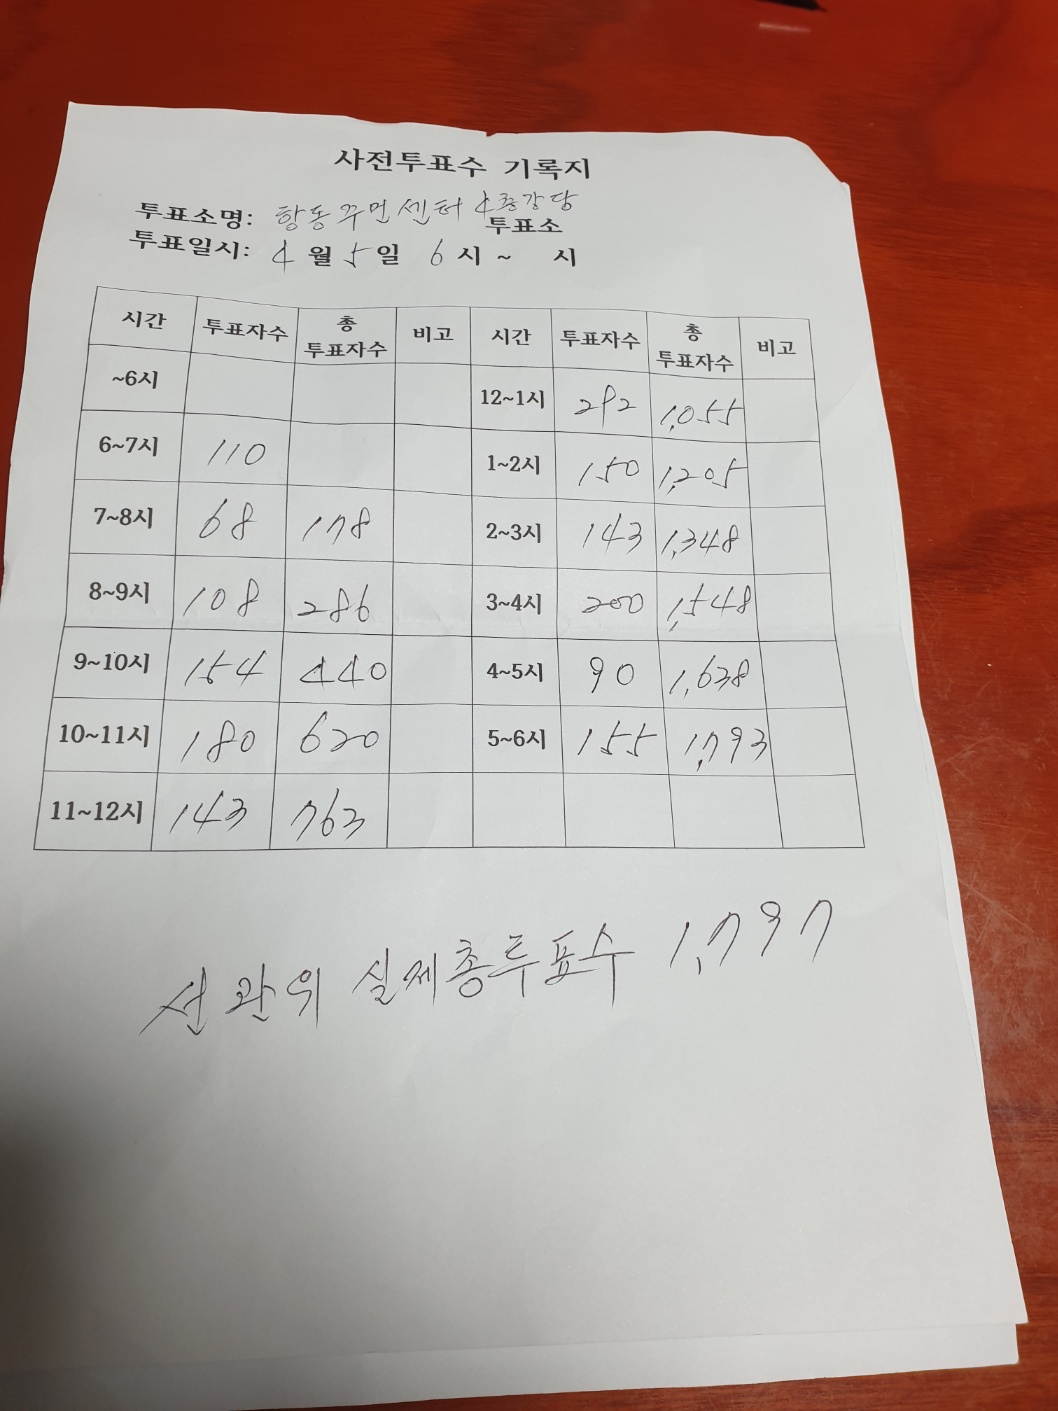 사전투표수 기록지
투표소명: 항동주민센터 4층강당 투표소
투표일시: 4월 5일 6시 ~ 시
시간 투표자수 총 투표자수 비고 시간 투표자수 총 투표자수 비고
~6시 12~1시 292 1,055
6~7시 110 1~2시 150 1,205
7~8시 68 178 2~3시 143 1,348
8~9시 108 286 3~4시 200 1,548
9~10시 154 440 4~5시 90 1,638
10~11시 180 620 5~6시 155 1,793
11~12시 143 763
선관위 실제총투표수 1,797